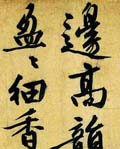 邊高韻
盈〻細香